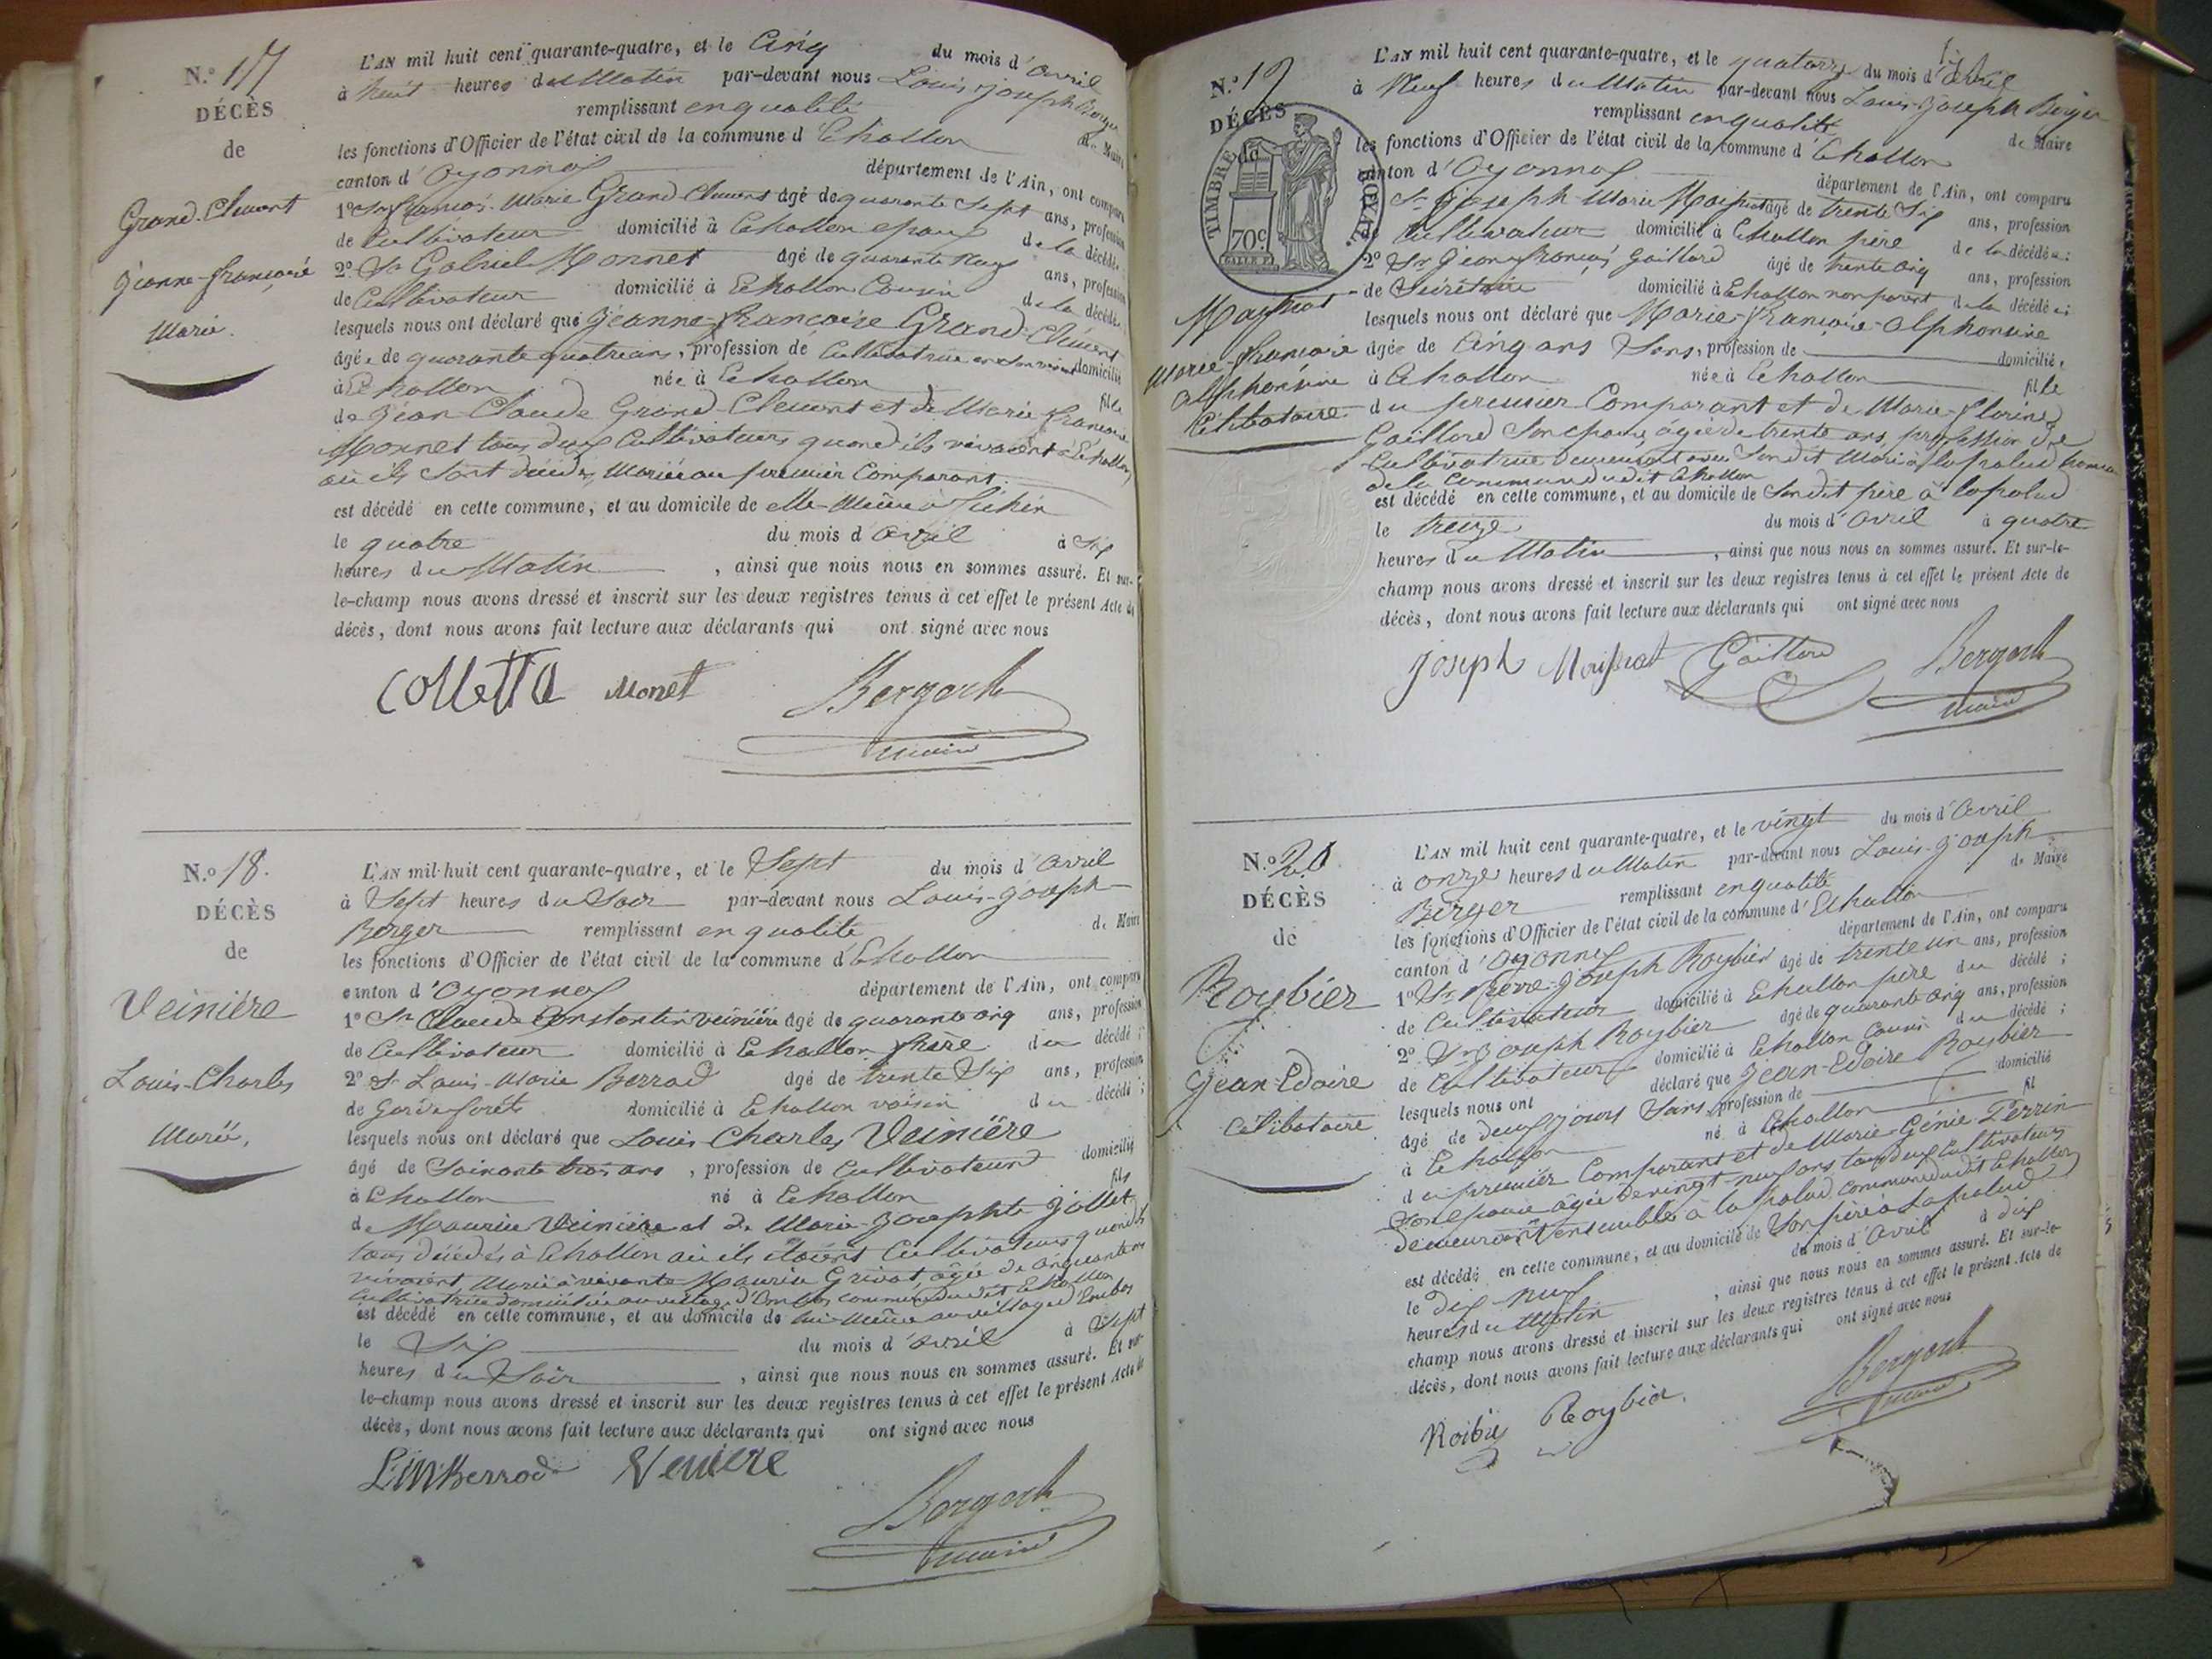 N.º 17
DÉCÈS
de
Grand-Clément
Jeanne-françoise
Mariée.
L'AN mil huit cent quarante-quatre, et le Cinq du mois d'avril
à huit heures du Matin par-devant nous Louis-joseph Berger
remplissant en qualité de Maire
les fonctions d'Officier de l'état civil de la commune d'Echallon
canton d'Oyonnax département de l'Ain, ont comparu
1º Sr françois-Marie Grand-Clément âgé de quarante Sept ans, profession
de Cultivateur domicilié à Echallon epoux de la décédée
2º Sr Gabriel Monnet âgé de quarante neuf ans, profession
de Cultivateur domicilié à Echallon Cousin de la décédée
lesquels nous ont déclaré que Jeanne-françoise Grand-Clément
âgée de quarante quatre ans, profession de Cultivatrice en son vivant domicilié
à Echallon née à Echallon fille
de Jean-Claude Grand-Clément et de Marie françoise
Monnet tous deux Cultivateurs quand ils vivaient à Echallon
où ils Sont décédés, Mariée au premier Comparant.
est décédé en cette commune, et au domicile de elle-Même à
le quatre du mois d'avril à Six
heures du Matin, ainsi que nous nous en sommes assuré. Et sur-
le-champ nous avons dressé et inscrit sur les deux registres tenus à cet effet le présent Acte de
décès, dont nous avons fait lecture aux déclarants qui ont signé avec nous
Colletta Monet Berger
maire
N.º 18.
DÉCÈS
de
Veinière
Louis-Charles
Marié,
L'AN mil huit cent quarante-quatre, et le Sept du mois d'avril
à Sept heures du Soir par-devant nous Louis-joseph
Berger remplissant en qualité de Maire
les fonctions d'Officier de l'état civil de la commune d'Echallon
canton d'Oyonnax département de l'Ain, ont comparu
1º Sr Claude Constantin veinière âgé de quarante cinq ans, profession
de Cultivateur domicilié à Echallon frère du décédé ;
2º Sr Louis-Marie Berrod âgé de trente Six ans, profession
de Garde forêts domicilié à Echallon voisin du décédé ;
lesquels nous ont déclaré que Louis Charles Veinière
âgé de Soixante trois ans, profession de Cultivateur domicilié
à Echallon né à Echallon fils
de Maurice Veinière et de Marie-Josephte Jollet
tous décédés à Echallon où ils étaient Cultivateurs quand ils
vivaient, Marié à vivante Maurice Grivat, âgée de cinquante ans
Cultivatrice domiciliée au village d'Ombos commune dudit Echallon
est décédé en cette commune, et au domicile de lui-Même au village d'Ombos
le Six du mois d'avril à Sept
heures du Soir, ainsi que nous nous en sommes assuré. Et sur-
le-champ nous avons dressé et inscrit sur les deux registres tenus à cet effet le présent Acte de
décès, dont nous avons fait lecture aux déclarants qui ont signé avec nous
L.M Berrod Veniere
Berger
maire
N.º 19
DÉCÈS
de
TIMBRE ROYAL
70c
Maissiat
Marie-françoise
alphonsine
Célibataire
L'AN mil huit cent quarante-quatre, et le quatorze du mois d'avril
à Neuf heures du Matin par-devant nous Louis-Joseph Berger
remplissant en qualité de Maire
les fonctions d'Officier de l'état civil de la commune d'Echallon
canton d'Oyonnax département de l'Ain, ont comparu
Sr Joseph-Marie Maissiat âgé de trente Six ans, profession
de Cultivateur domicilié à Echallon père de la décédée ;
2º Sr Jean-françois Gaillard âgé de trente cinq ans, profession
de Secrétaire domicilié à Echallon non parent de la décédée ;
lesquels nous ont déclaré que Marie-françoise-alphonsine
âgée de Cinq ans Sans, profession de domicilié,
à Echallon née à Echallon fille
du premier Comparant et de Marie-florine
Gaillard Son épouse, âgée de trente ans, profession de
Cultivatrice demeurant avec Son dit Mari à lapalud hameau
de la Commune dudit Echallon
est décédé en cette commune, et au domicile de Son dit père à lapalud
le treize du mois d'avril à quatre
heures du Matin, ainsi que nous nous en sommes assuré. Et sur-le-
champ nous avons dressé et inscrit sur les deux registres tenus à cet effet le présent Acte de
décès, dont nous avons fait lecture aux déclarants qui ont signé avec nous
Joseph Maissiat Gaillard Berger
maire
N.º 20
DÉCÈS
de
Roybier
Jean-Edoire
Célibataire
L'AN mil huit cent quarante-quatre, et le vingt du mois d'avril
à onze heures du Matin par-devant nous Louis-Joseph
Berger remplissant en qualité de Maire
les fonctions d'Officier de l'état civil de la commune d'Echallon
canton d'Oyonnax département de l'Ain, ont comparu
1º Sr Pierre-Joseph Roybier âgé de trente un ans, profession
de Cultivateur domicilié à Echallon père du décédé ;
2º Sr Joseph Roybier âgé de quarante cinq ans, profession
de Cultivateur domicilié à Echallon Cousin du décédé ;
lesquels nous ont déclaré que Jean-Edoire Roybier
âgé de deux jours Sans, profession de domicilié
à Echallon né à Echallon fil
du premier Comparant et de Marie-Génie Perrin
Son épouse âgée de vingt-neuf ans, tous deux Cultivateurs
demeurant ensemble à la palud, commune dudit Echallon
est décédé en cette commune, et au domicile de Son père à Lapalud
le dix-neuf du mois d'avril à dix
heures du Matin, ainsi que nous nous en sommes assuré. Et sur-le-
champ nous avons dressé et inscrit sur les deux registres tenus à cet effet le présent Acte de
décès, dont nous avons fait lecture aux déclarants qui ont signé avec nous
Roibier Roybier. Berger
maire